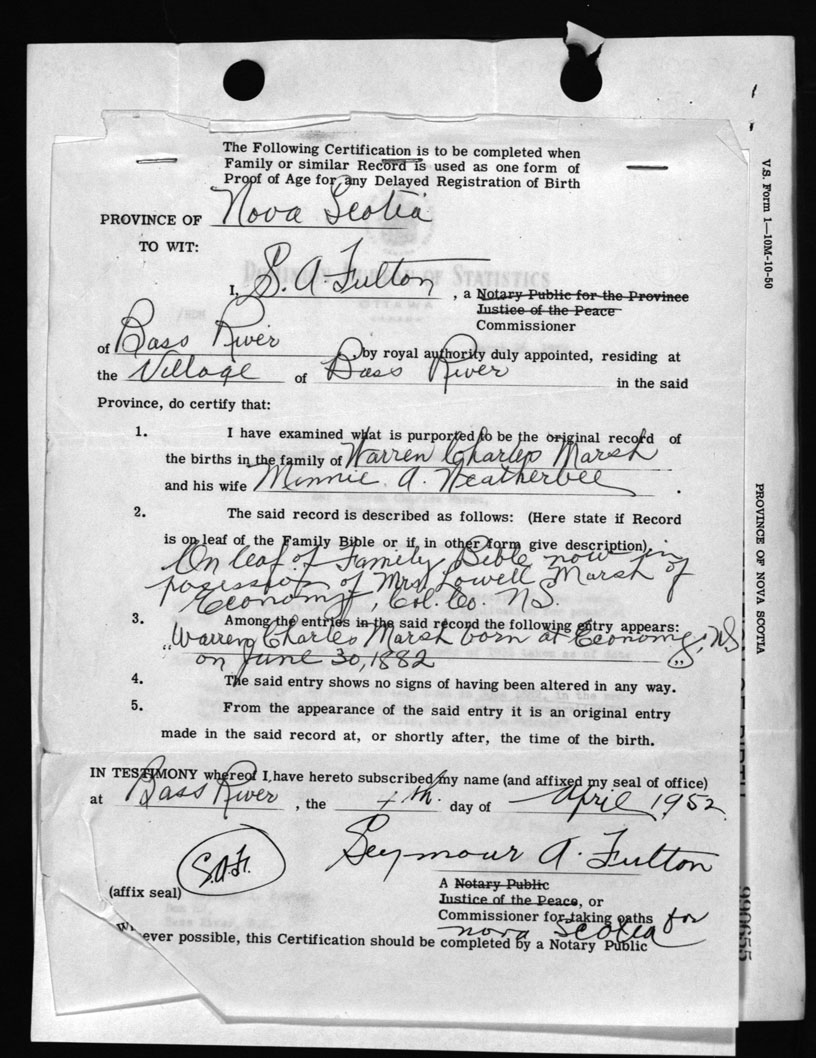 The Following Certification is to be completed when
Family or similar Record is used as one form of
Proof of Age for any Delayed Registration of Birth
PROVINCE OF Nova Scotia
TO WIT:
DOMINION BUREAU OF STATISTICS
OTTAWA
I, S. A. Fulton, a Notary Public for the Province
Justice of the Peace
Commissioner
of Bass River, by royal authority duly appointed, residing at
the Village of Bass River in the said
Province, do certify that:
1. I have examined what is purported to be the original record of
the births in the family of Warren Charles Marsh
and his wife Minnie A. Weatherbee.
2. The said record is described as follows: (Here state if Record
is on leaf of the Family Bible or if in other form give description)
On leaf of Family Bible now in
posession of Mrs Lowell Marsh of
Economy, Col. Co. N.S.
3. Among the entries in the said record the following entry appears:
"Warren Charles Marsh born at Economy, N.S
on June 30, 1882"
4. The said entry shows no signs of having been altered in any way.
5. From the appearance of the said entry it is an original entry
made in the said record at, or shortly after, the time of the birth.
IN TESTIMONY whereof I have hereto subscribed my name (and affixed my seal of office)
at Bass River, the day of April 1952.
Seymour A. Fulton
S.A.F.
(affix seal)
A Notary Public
Justice of the Peace, or
Commissioner for taking oaths for
Nova Scotia
ever possible, this Certification should be completed by a Notary Public
V.S. Form 1—10M-10-50
PROVINCE OF NOVA SCOTIA
OF BIRTH
990655